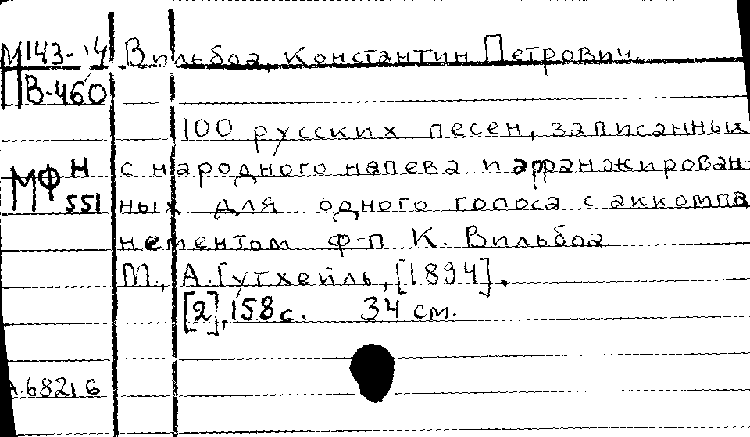 М143-14 Вильбоа, Константин Петрович.
В-460
100 русских песен, записанных
МФ Н с народного напева и арранжирован-
551 ных для одного голоса с аккомпа
нементом ф-п К. Вильбоа
М., А. Гутхейль, [1894].
[2], 158 с. 34 см.
А.682,6